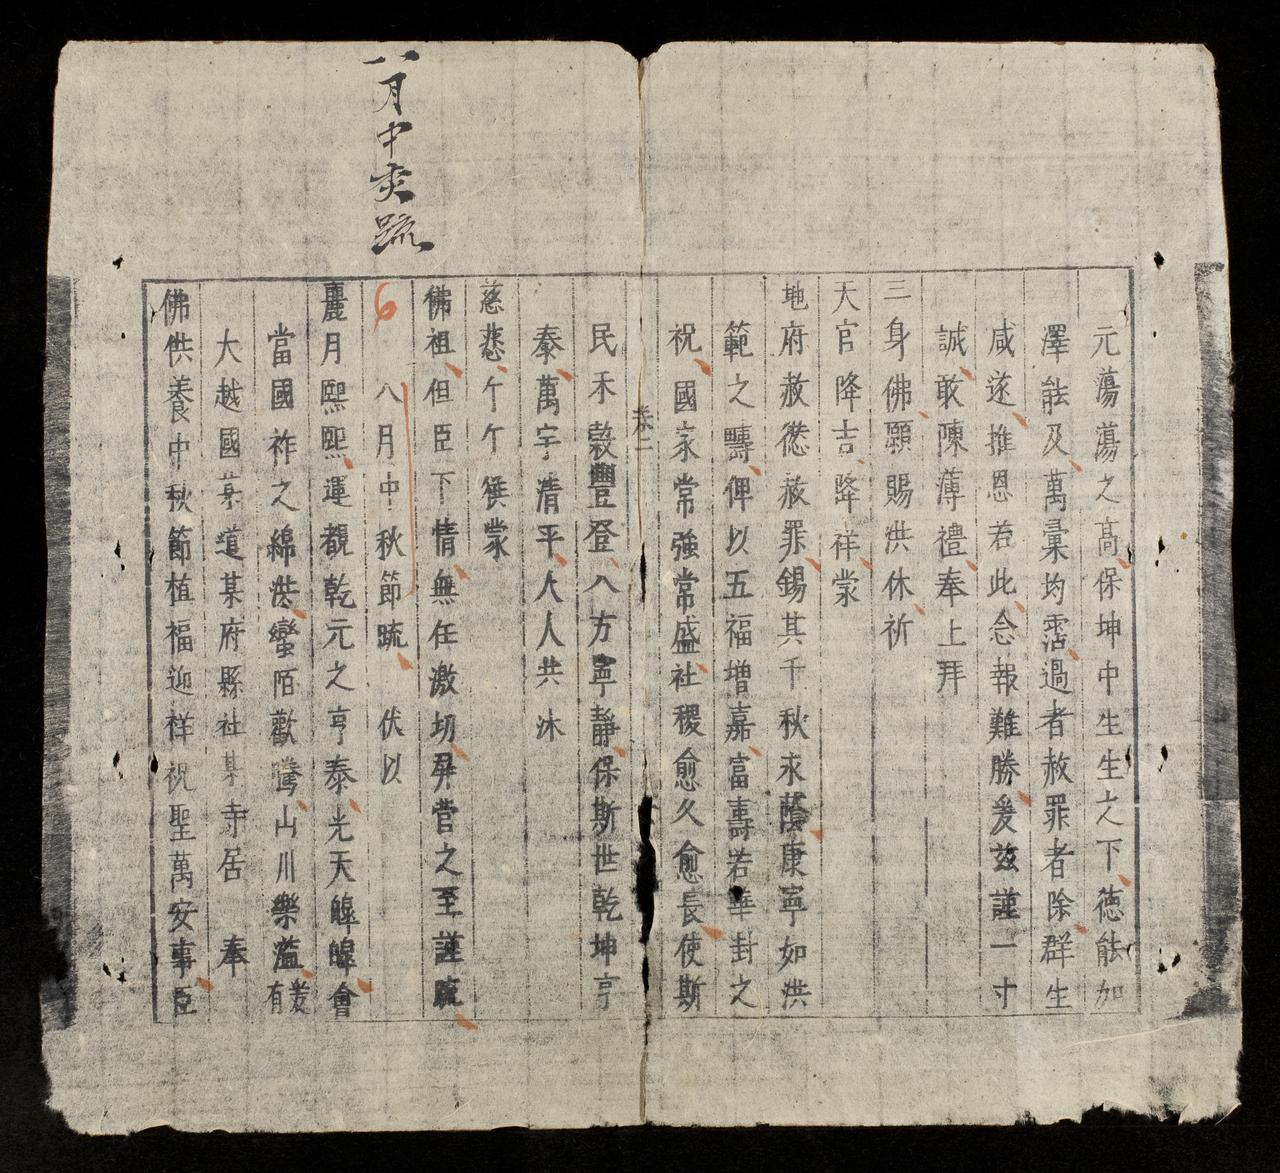 元蕩蕩之高保坤中生生之下德能如
澤能及萬彙均霑過者赦罪者除群生
咸遂推恩若此念報難勝爰茲謹一寸
誠敢陳薄禮奉上拜
三身佛願賜洪休祈
天官降吉降祥蒙
地府赦愆赦罪錫其千秋永蔭康寧如洪
範之疇俾以五福增嘉富壽若華封之
祝國家常強常盛社稷愈久愈長使斯
卷二
民禾穀豐登八方寧靜保斯世乾坤亨
泰萬宇清平人人共沐
慈悲个个僕蒙
佛祖但臣下情無任激切屏营之至謹疏
八月中秋節疏 伏以
麗月熙熙運覩乾元之亨泰光天皥皥會
當國祚之綿洪蠻陌歡騰山川樂溢兹有
大越國某道某府縣社某寺居 奉
佛供養中秋節植福迎祥祝聖萬安事臣
八月中秋疏
6